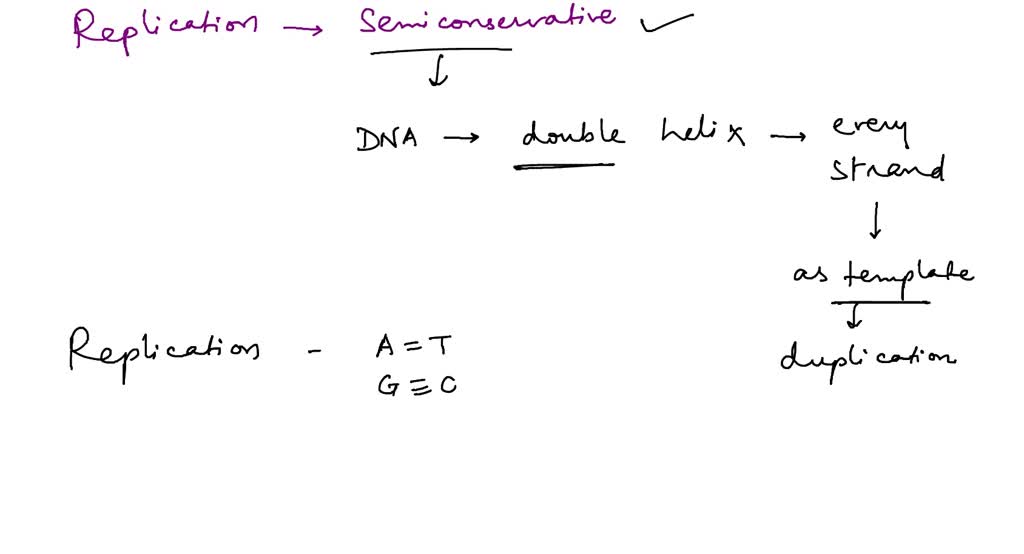 Replication → Semiconservative ✓
↓
DNA → double helix → every
strand
↓
as template
↓
duplication
Replication - A = T
G ≡ C